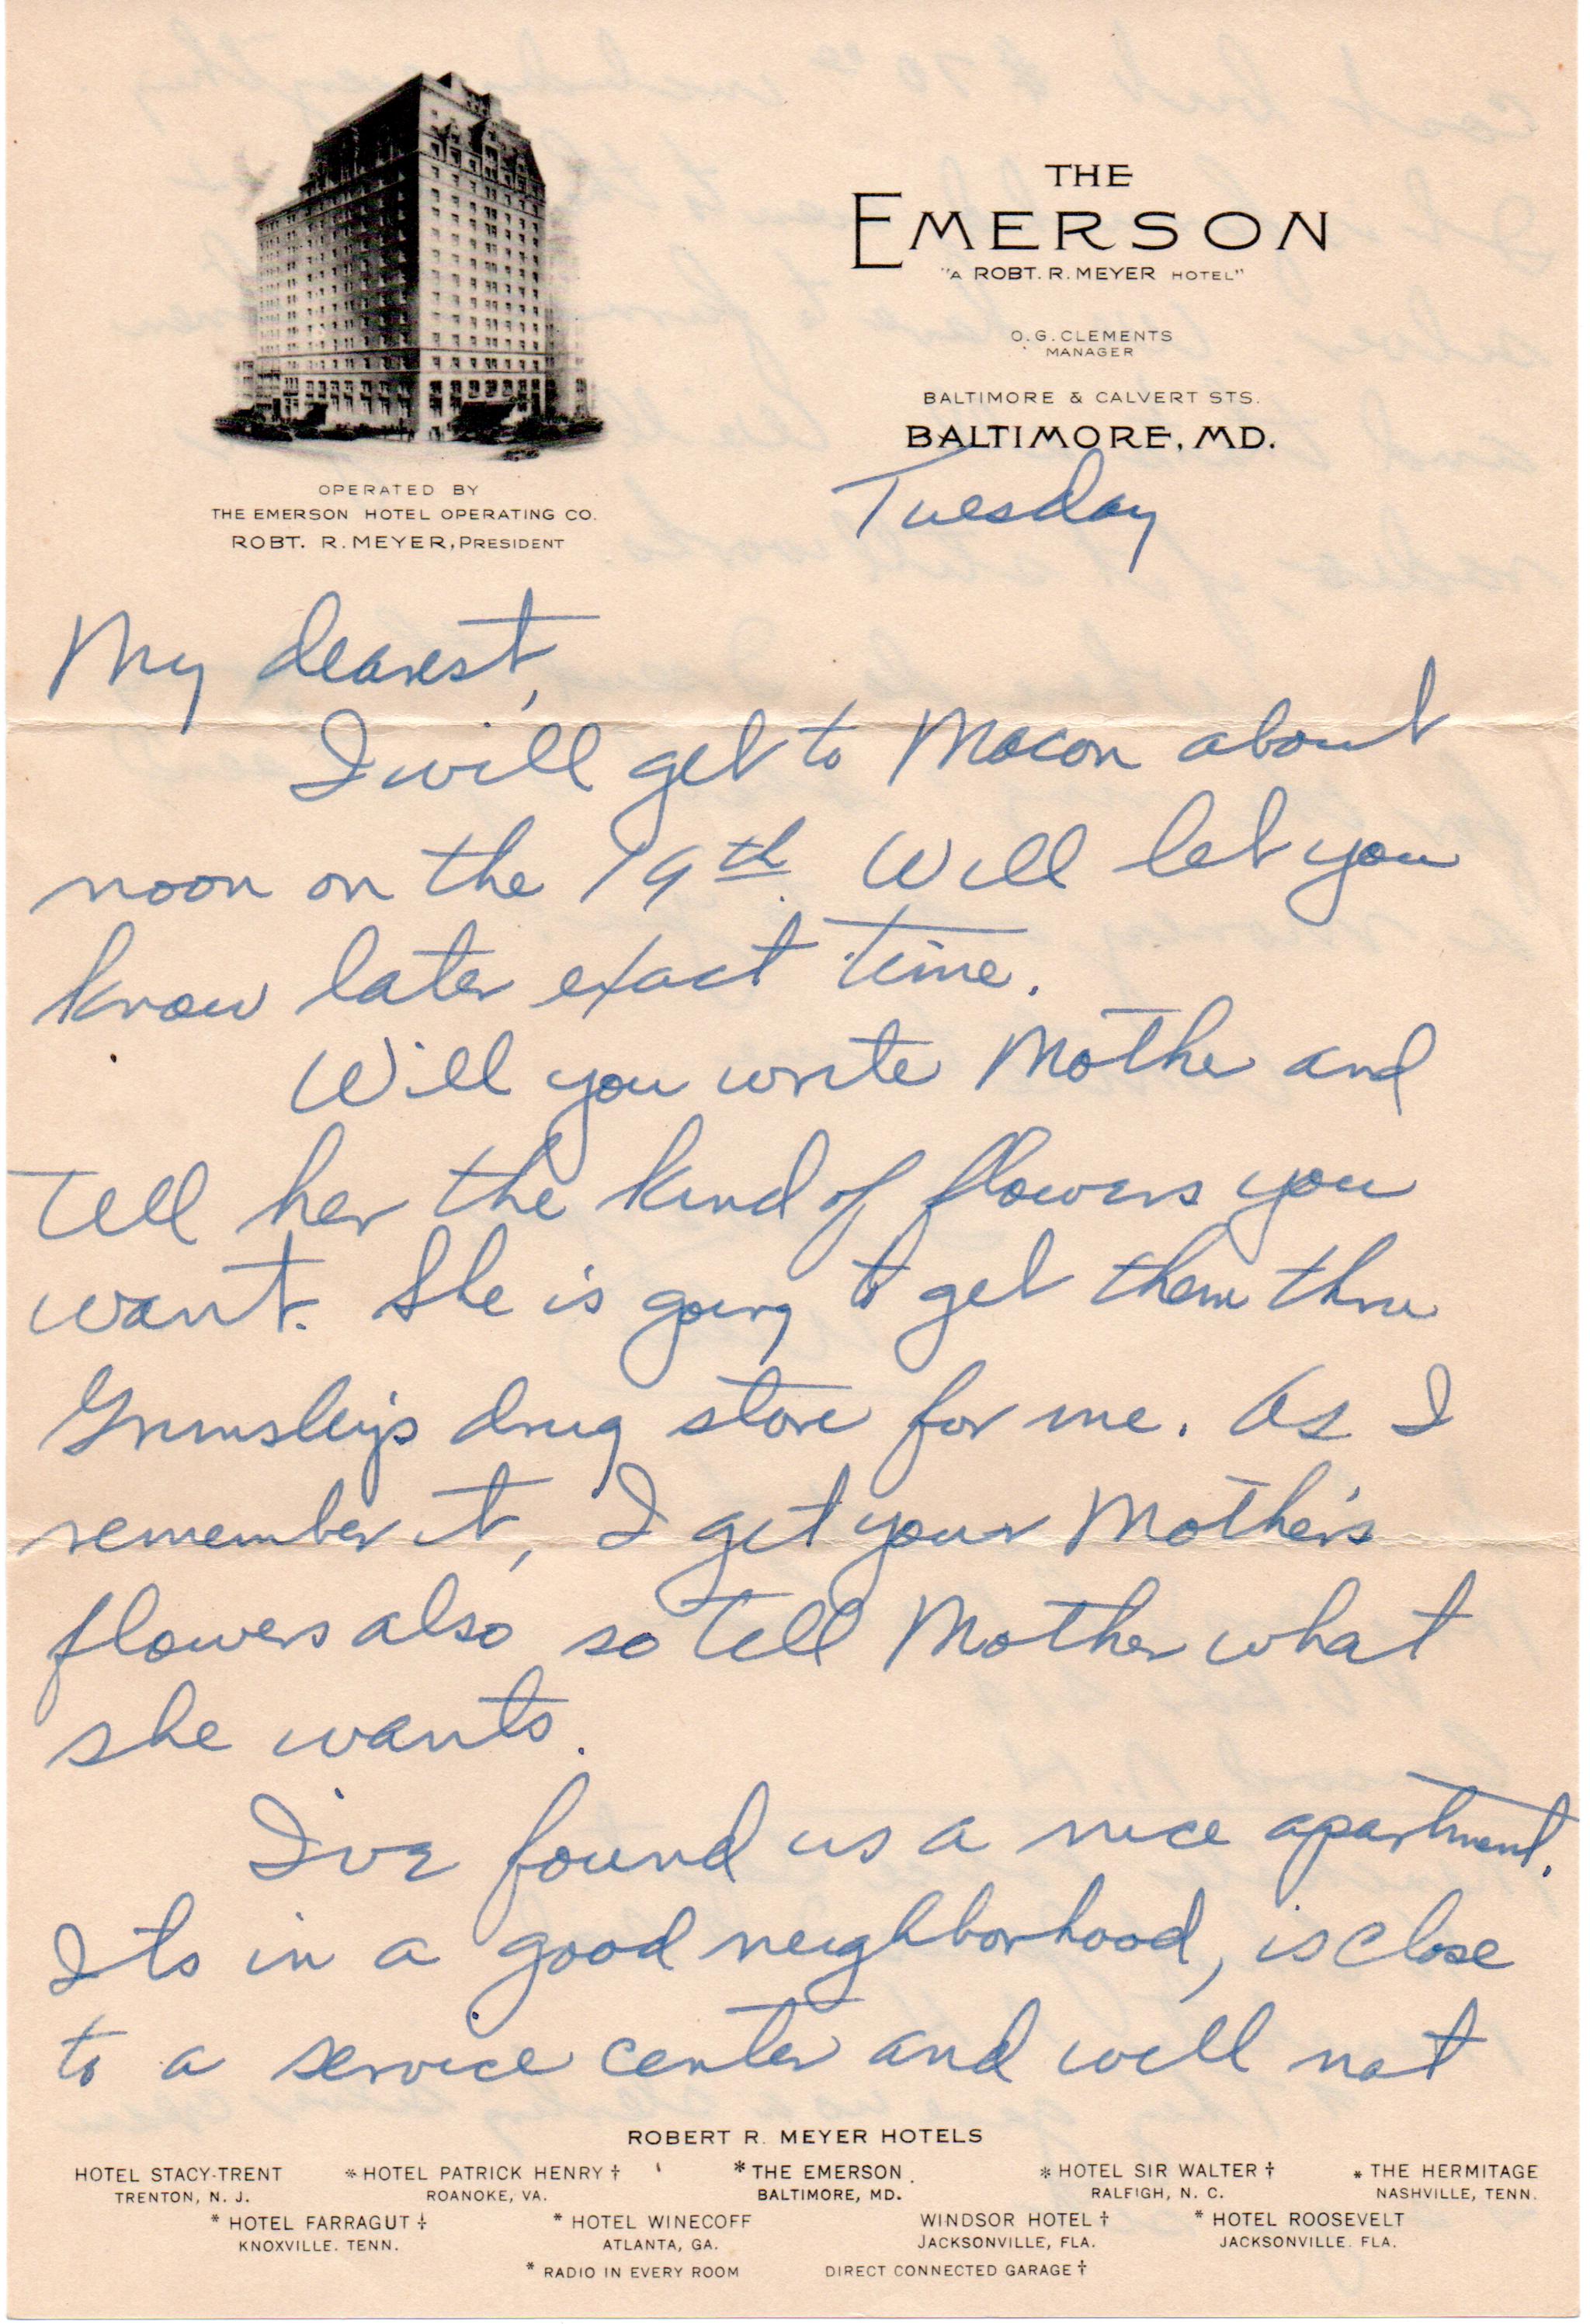 THE
EMERSON
"A ROBT. R. MEYER HOTEL"
O. G. CLEMENTS
MANAGER
BALTIMORE & CALVERT STS.
BALTIMORE, MD.
OPERATED BY
THE EMERSON HOTEL OPERATING CO.
ROBT. R. MEYER, PRESIDENT
Tuesday
My dearest,
I will get to Macon about
noon on the 19th. Will let you
know later exact time.
Will you write Mother and
tell her the kind of flowers you
want. She is going to get them thru
Grimsley's drug store for me. As I
remember it, I get your Mother's
flowers also so tell Mother what
she wants.
I've found us a nice apartment.
Its in a good neighborhood, is close
to a service center and will not
ROBERT R. MEYER HOTELS
HOTEL STACY-TRENT * HOTEL PATRICK HENRY † * THE EMERSON * HOTEL SIR WALTER † * THE HERMITAGE
TRENTON, N. J. ROANOKE, VA. BALTIMORE, MD. RALEIGH, N. C. NASHVILLE, TENN.
* HOTEL FARRAGUT † * HOTEL WINECOFF WINDSOR HOTEL † * HOTEL ROOSEVELT
KNOXVILLE. TENN. ATLANTA, GA. JACKSONVILLE, FLA. JACKSONVILLE. FLA.
* RADIO IN EVERY ROOM DIRECT CONNECTED GARAGE †